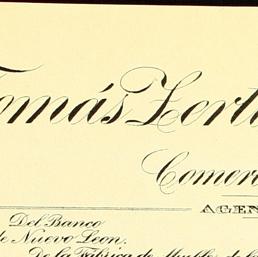 Tomás Zertu
Comer
AGEN
Del Banco
de Nuevo Leon.
De la Fábrica de Muebles de la